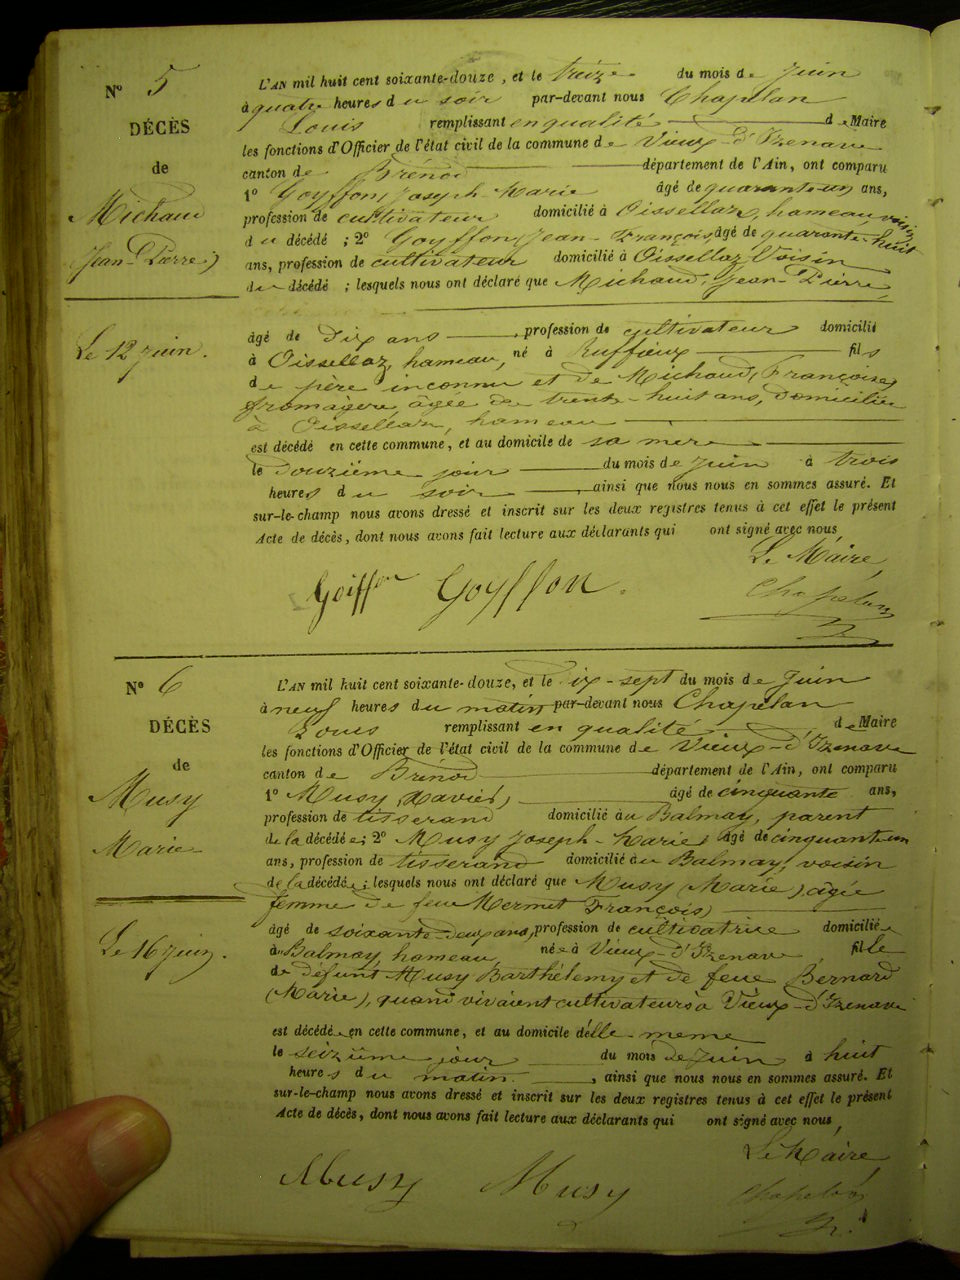 Nº 5
DÉCÈS
de
Michaud
Jean-Pierre)
Le 12 juin.
L'AN mil huit cent soixante-douze, et le treize du mois de Juin
à quatre heures du soir par-devant nous Chapelan
Louis remplissant en qualité de Maire
les fonctions d'Officier de l'état civil de la commune de Vieux-d'Izenave
canton de Brénod département de l'Ain, ont comparu
1º Goyffon, Joseph-Marie âgé de quarante-un ans,
profession de cultivateur domicilié à Oissellaz, hameau, voisin
du décédé ; 2º Goyffon, Jean-François, âgé de quarante-huit
ans, profession de cultivateur domicilié à Oisselloz Voisin
du décédé ; lesquels nous ont déclaré que Michaud, Jean-Pierre,
âgé de Dix ans, profession de cultivateur domicilié
à Oissellaz, hameau, né à Ruffieux fils
de père inconnu et de Michaud, (Françoise)
fromagère, âgée de trente-huit ans, domiciliée
à Oissellaz, hameau
est décédé en cette commune, et au domicile de sa mère
le douzième jour du mois de Juin à trois
heures du soir, ainsi que nous nous en sommes assuré. Et
sur-le-champ nous avons dressé et inscrit sur les deux registres tenus à cet effet le présent
Acte de décès, dont nous avons fait lecture aux déclarants qui ont signé avec nous
Le Maire,
Goiffon Goyffon. Chapelan
Nº 6
DÉCÈS
de
Musy
Marie
Le 16 juin.
L'AN mil huit cent soixante-douze, et le Dix-sept du mois de Juin
à neuf heures du matin par-devant nous Chapelan
Louis remplissant en qualité de Maire
les fonctions d'Officier de l'état civil de la commune de Vieux-d'Izenave
canton de Brénod département de l'Ain, ont comparu
1º Musy (Xavier) âgé de cinquante ans,
profession de tisserand domicilié au Balmay, parent
de la décédée; 2º Musy Joseph-Marie, âgé de cinquante un
ans, profession de tisserand domicilié au Balmay, voisin
de la décédée; lesquels nous ont déclaré que Musy (Marie) âgée
femme de feu Mermet François)
âgé de soixante-deux ans, profession de cultivatrice domiciliée
à Balmay, hameau, née à Vieux-d'Izenave, fille
de défunt Musy Barthélemy et de feue Bernard
(Marie), quand vivaient cultivateurs à Vieux-d'Izenave
est décédée en cette commune, et au domicile d'elle-même
le seizième jour du mois de Juin à huit
heures du matin, ainsi que nous nous en sommes assuré. Et
sur-le-champ nous avons dressé et inscrit sur les deux registres tenus à cet effet le présent
Acte de décès, dont nous avons fait lecture aux déclarants qui ont signé avec nous,
Le Maire,
Musy Musy Chapelan